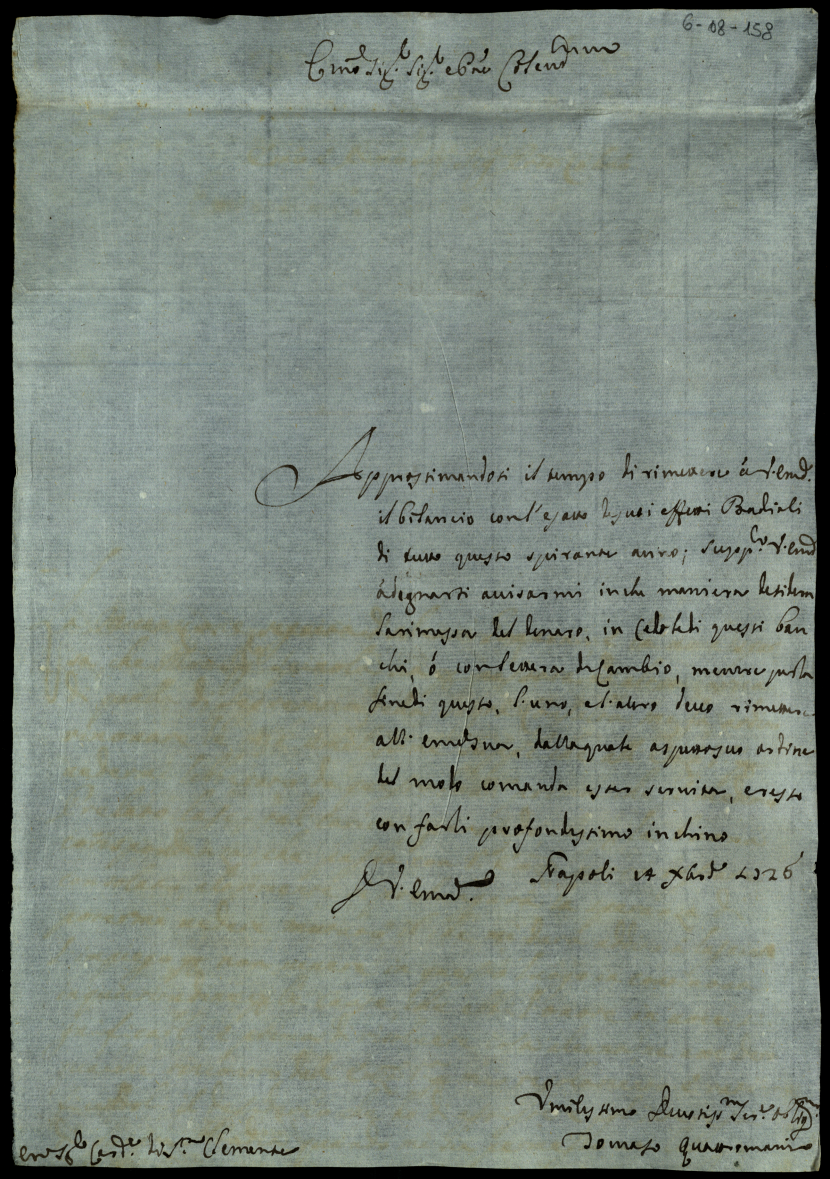 6-08-158
Em.o Sig.r Sig.r e P.ne Colend.mo
Approssimandosi il tempo di rimettere à V. Em.a
il bilancio con l'esatto de suoi effetti Badiali
di tutto questo spirante anno; supp.co V. Em.a
à degnarsi avisarmi in che maniera desidera
la rimessa del denaro, in Cedole di questi ban
chi, ó con lettera di Cambio, mentre
fine di questo, l'uno, e l'altro devo rimettere
all' Em.a sua, dalla quale aspetto suo ordine
del modo comanda esser servita, e resto
con farli profondissimo inchino
D V. Em.a Napoli 14 Xbre 1726
Umilissimo Devotiss.mo Ser.e Oblig.mo
Tomaso Quattromani
Em. S.r Card.e di S. Clemente